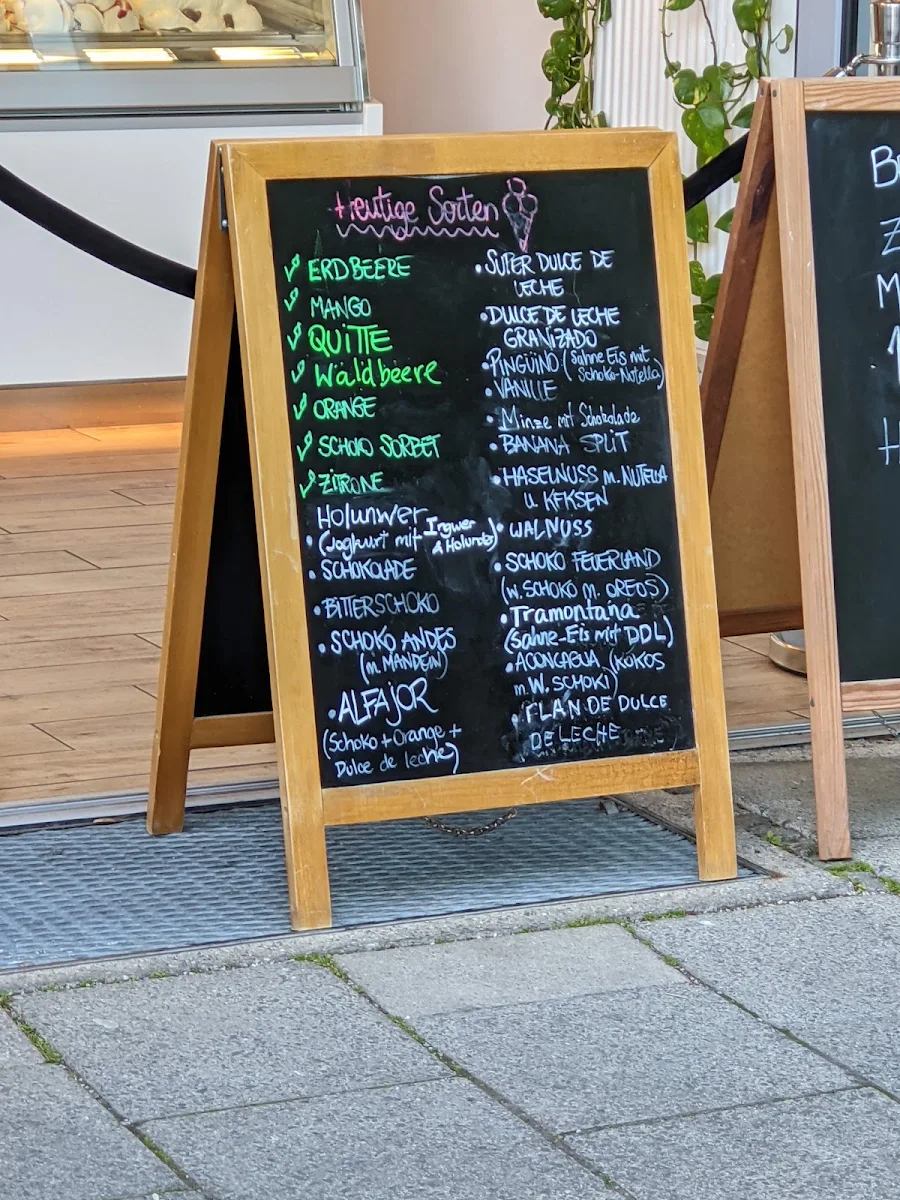 Heutige Sorten
ERDBEERE
MANGO
QUITTE
Waldbeere
ORANGE
SCHOKO SORBET
ZITRONE
Holunwer
(Joghurt mit Ingwer & Holunder)
SCHOKOLADE
BITTERSCHOKO
SCHOKO ANDES
(m. MANDELN)
ALFAJOR
(Schoko + Orange +
Dulce de leche)
SUPER DULCE DE
LECHE
DULCE DE LECHE
GRANIZADO
PINGÜINO (Sahne Eis mit
Schoko-Nutella)
VANILLE
Minze mit Schokolade
BANANA SPLIT
HASELNUSS m. NUTELLA
u. KEKSEN
WALNUSS
SCHOKO FEUERLAND
(w. SCHOKO m. OREOS)
Tramontana
(Sahne-Eis mit DDL)
ACONCAGUA (KOKOS
m. W. SCHOKI)
FLAN DE DULCE
DE LECHE